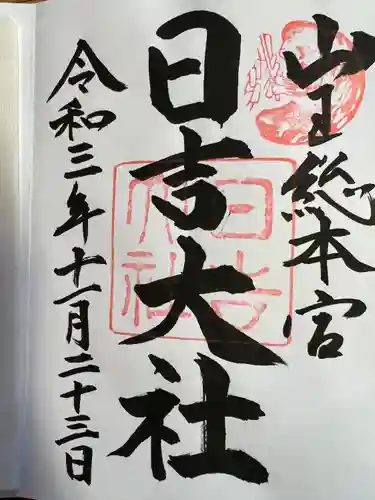 山王総本宮
日吉大社
令和三年十一月二十三日
日吉大社